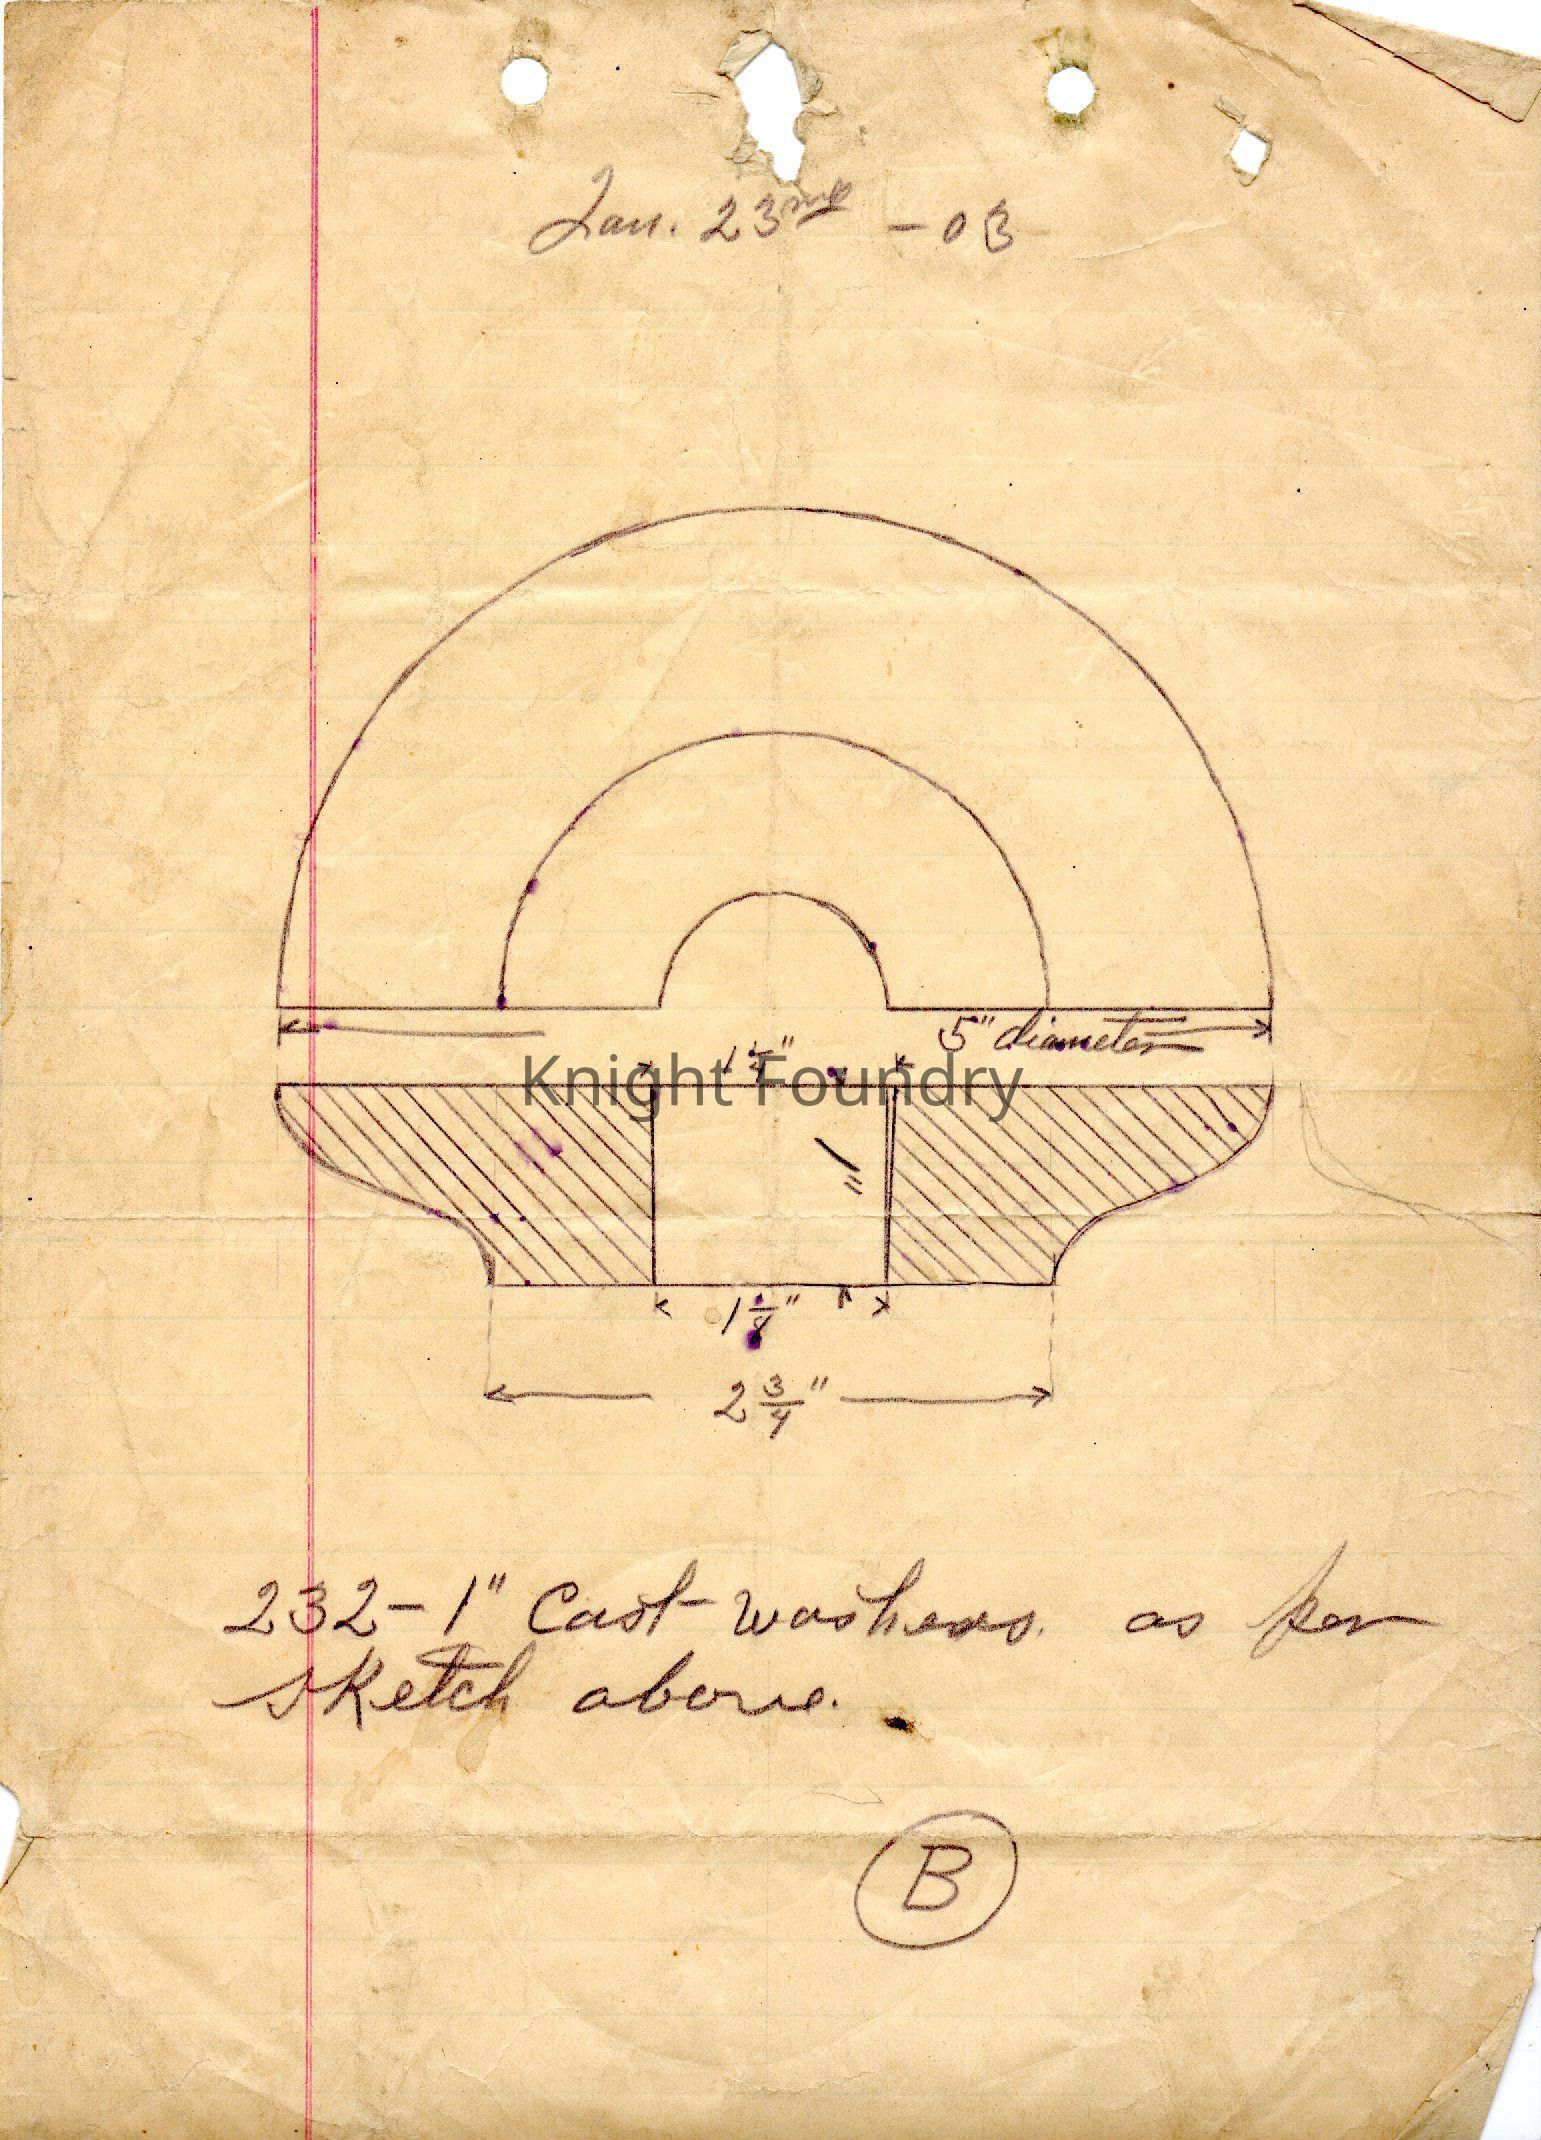 Jan. 23rd - 03
5" diameter
1 1/4"
Knight Foundry
1"
1 1/8"
2 3/4"
232 - 1" Cast washers. as per
sketch above.
B